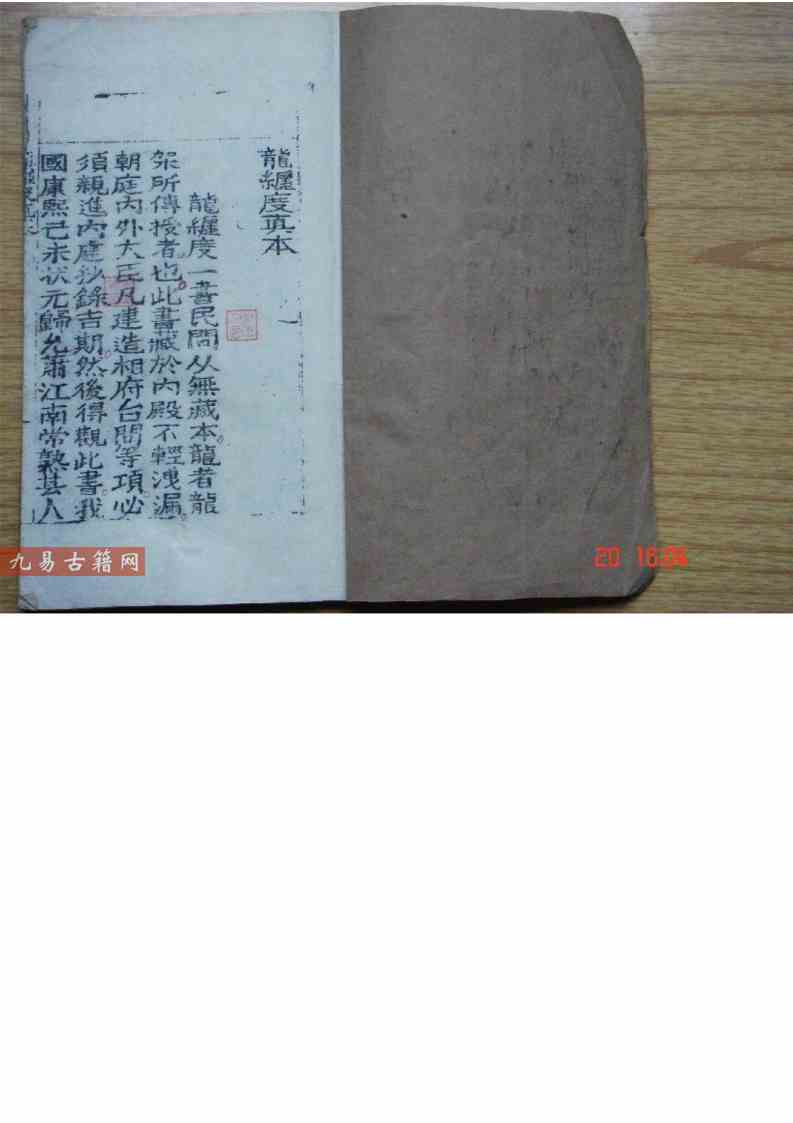 龍纏度真本
龍纏度一書民間从無藏本龍者龍
架所傳授者也此書藏於内殿不輕洩漏
朝庭内外大臣凡建造相府台閣等項必
須親進内庭抄錄吉期然後得觀此書我
國康熙己未狀元歸允肅江南常熟縣人
九易古籍网
20 16:04